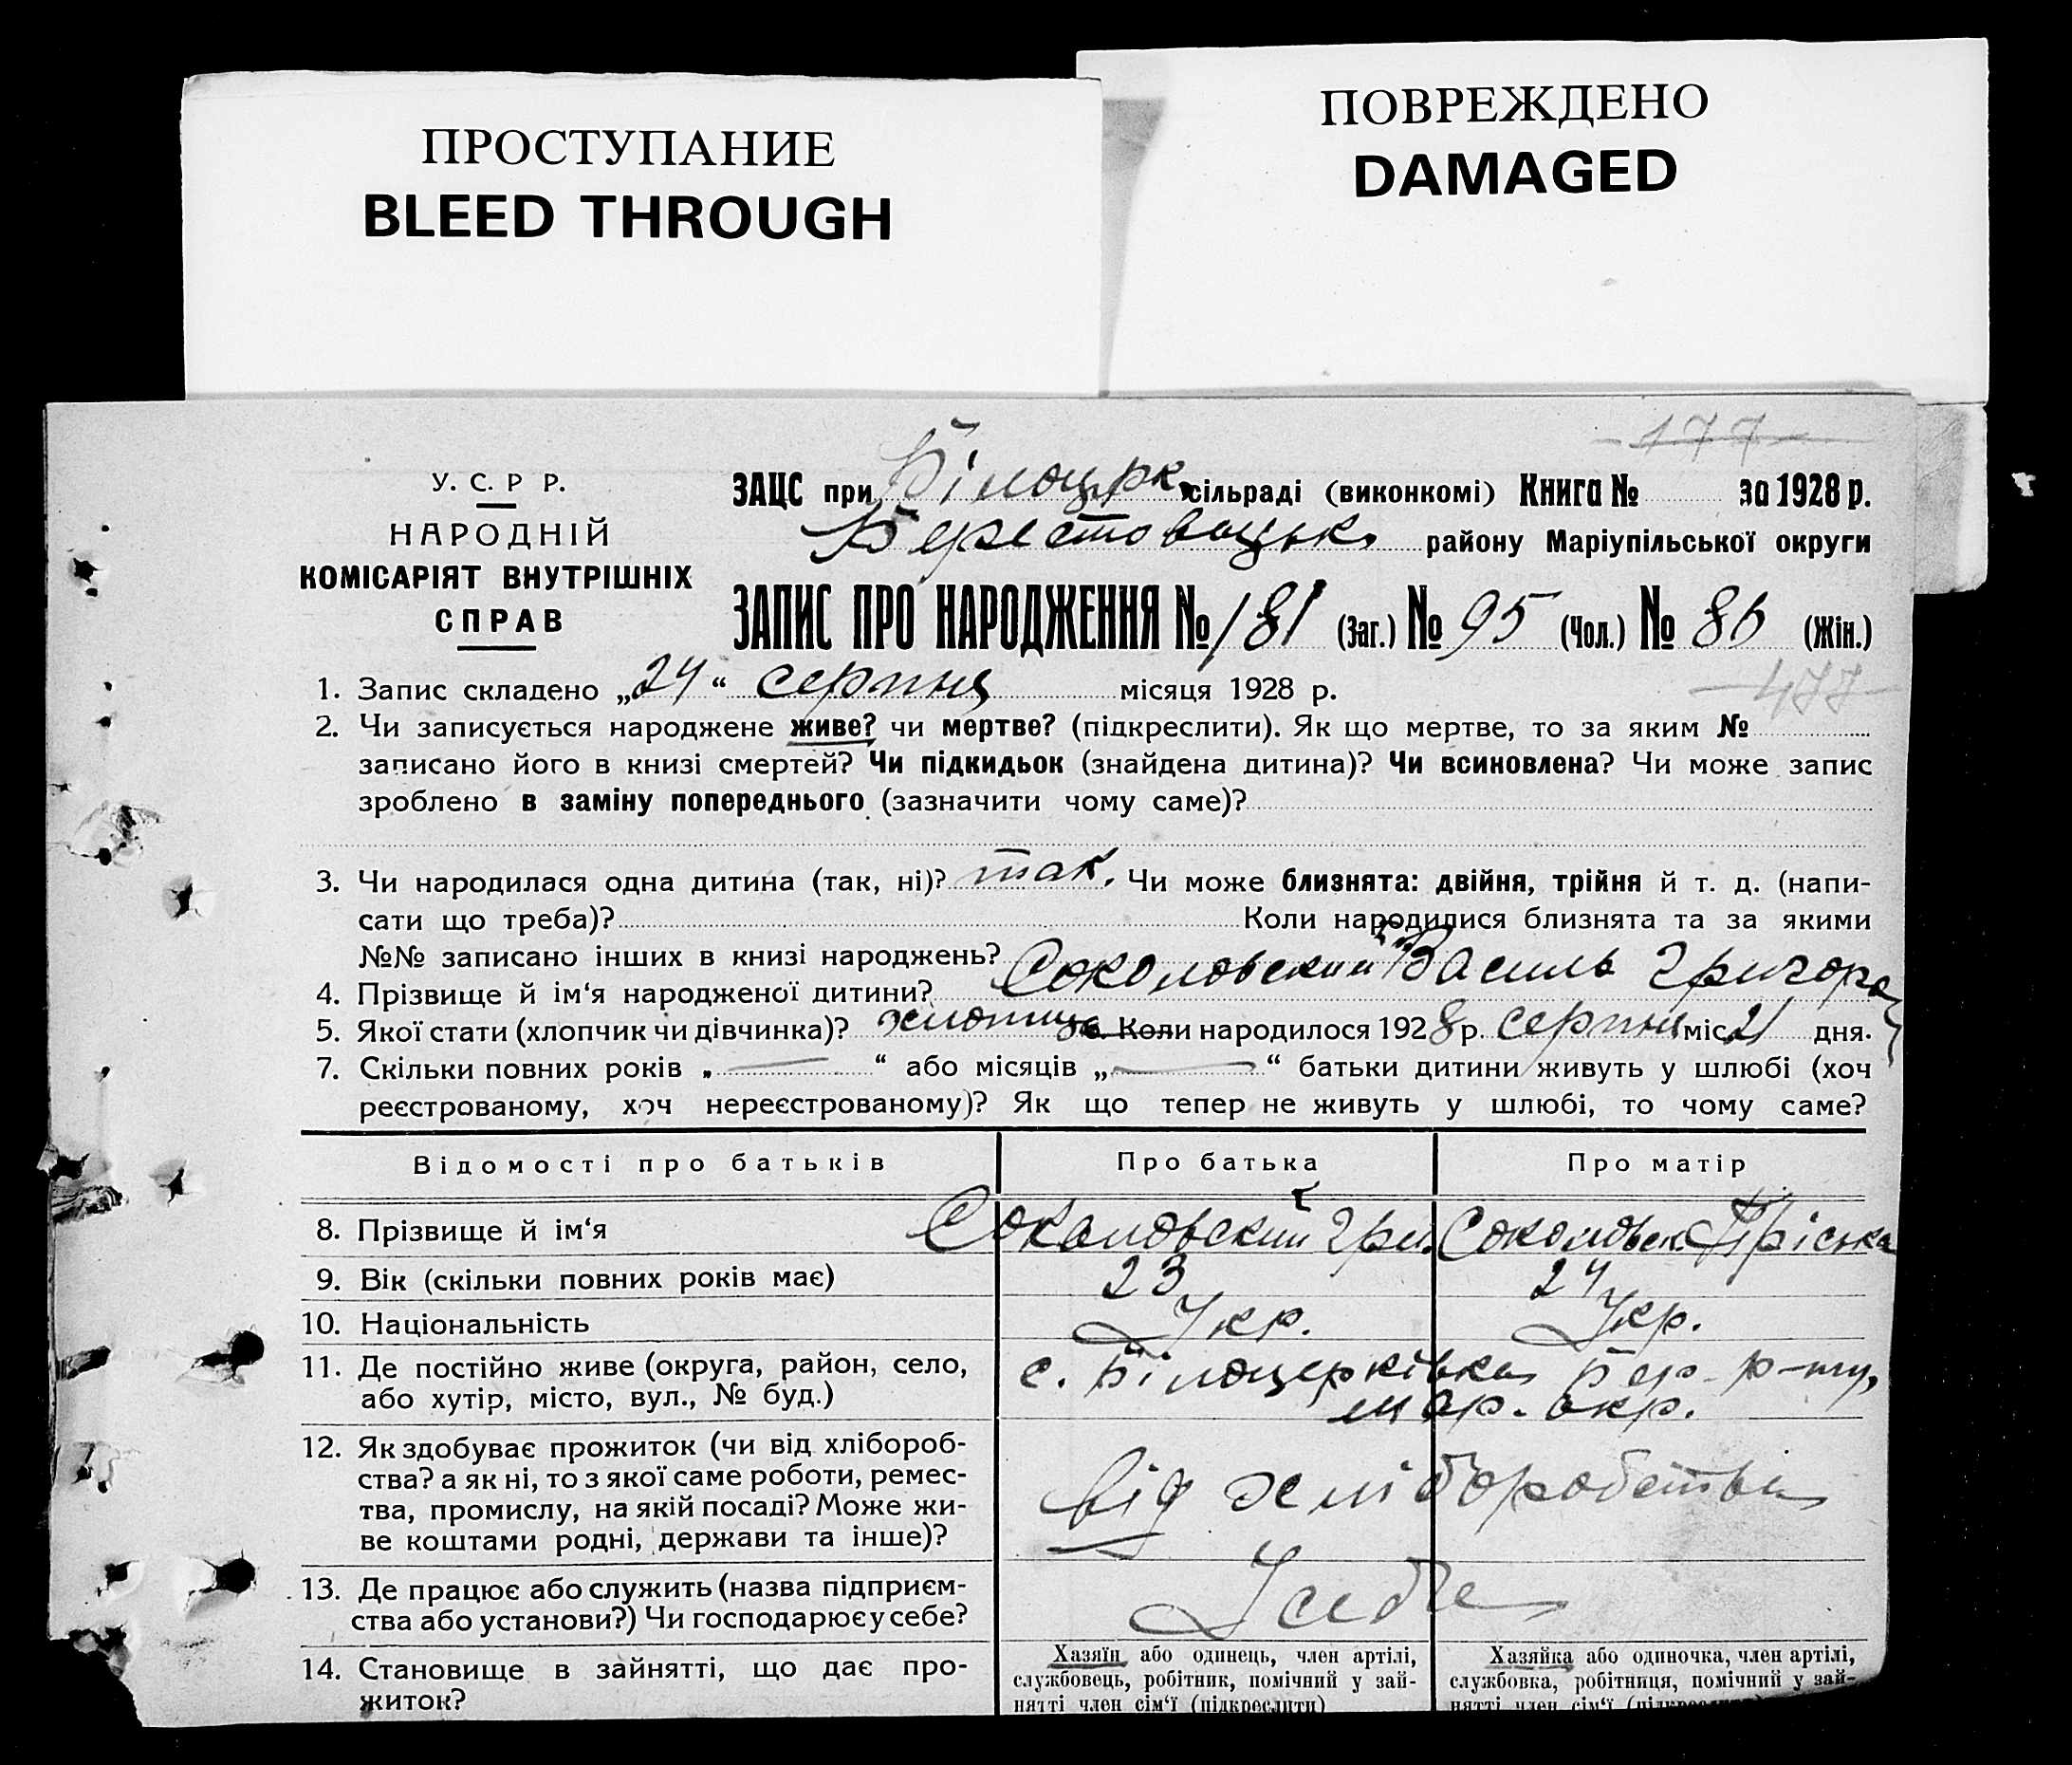 ПРОСТУПАНИЕ
BLEED THROUGH
ПОВРЕЖДЕНО
DAMAGED
177
У. С. Р Р.
НАРОДНІЙ
КОМІСАРІЯТ ВНУТРІШНІХ
СПРАВ
ЗАЦС при Білоцерк. сільраді (виконкомі) Книга № за 1928 р.
Берестовецьк. району Маріупільської округи
ЗАПИС ПРО НАРОДЖЕННЯ № 181 (Заг.) № 95 (Чол.) № 86 (Жін.)
1. Запис складено „24“ серпня місяця 1928 р.
177
2. Чи записується народжене живе? чи мертве? (підкреслити). Як що мертве, то за яким №
записано його в книзі смертей? Чи підкидьок (знайдена дитина)? Чи всиновлена? Чи може запис
зроблено в заміну попереднього (зазначити чому саме)?
3. Чи народилася одна дитина (так, ні)? так. Чи може близнята: двійня, трійня й т. д. (напи-
сати що треба)? Коли народилися близнята та за якими
№№ записано інших в книзі народжень?
4. Прізвище й ім‘я народженої дитини? Соколовський Василь Григора
5. Якої стати (хлопчик чи дівчинка)? хлопець 6. Коли народилося 1928 р. серпня міс. 21 дня.
7. Скільки повних років „ — “ або місяців „ — “ батьки дитини живуть у шлюбі (хоч
реєстрованому, хоч нереєстрованому)? Як що тепер не живуть у шлюбі, то чому саме?
Відомості про батьків Про батька Про матір
8. Прізвище й ім‘я Соколовський Гри. Соколовськ. Пріська
9. Вік (скільки повних років має) 23 24
10. Національність Укр. Укр.
11. Де постійно живе (округа, район, село,
або хутір, місто, вул., № буд.)
с. Білоцерківка Бер. р-ну,
мар. окр.
12. Як здобуває прожиток (чи від хлібороб-
ства? а як ні, то з якої саме роботи, ремес-
тва, промислу, на якій посаді? Може жи-
ве коштами родні, держави та інше)?
від хліборобства
13. Де працює або служить (назва підприєм-
ства або установи?) Чи господарює у себе?
У себе
14. Становище в зайнятті, що дає про-
житок?
Хазяїн або одинець, член артілі,
службовець, робітник, помічний у зай-
нятті член сім‘ї (підкреслити)
Хазяйка або одиночка, член артілі,
службовка, робітниця, помічний у зай-
нятті член сім‘ї (підкреслити)